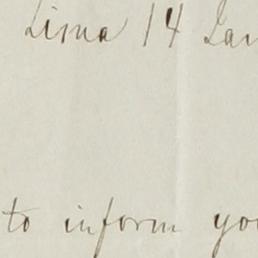 Lima 14 Jan
to inform you